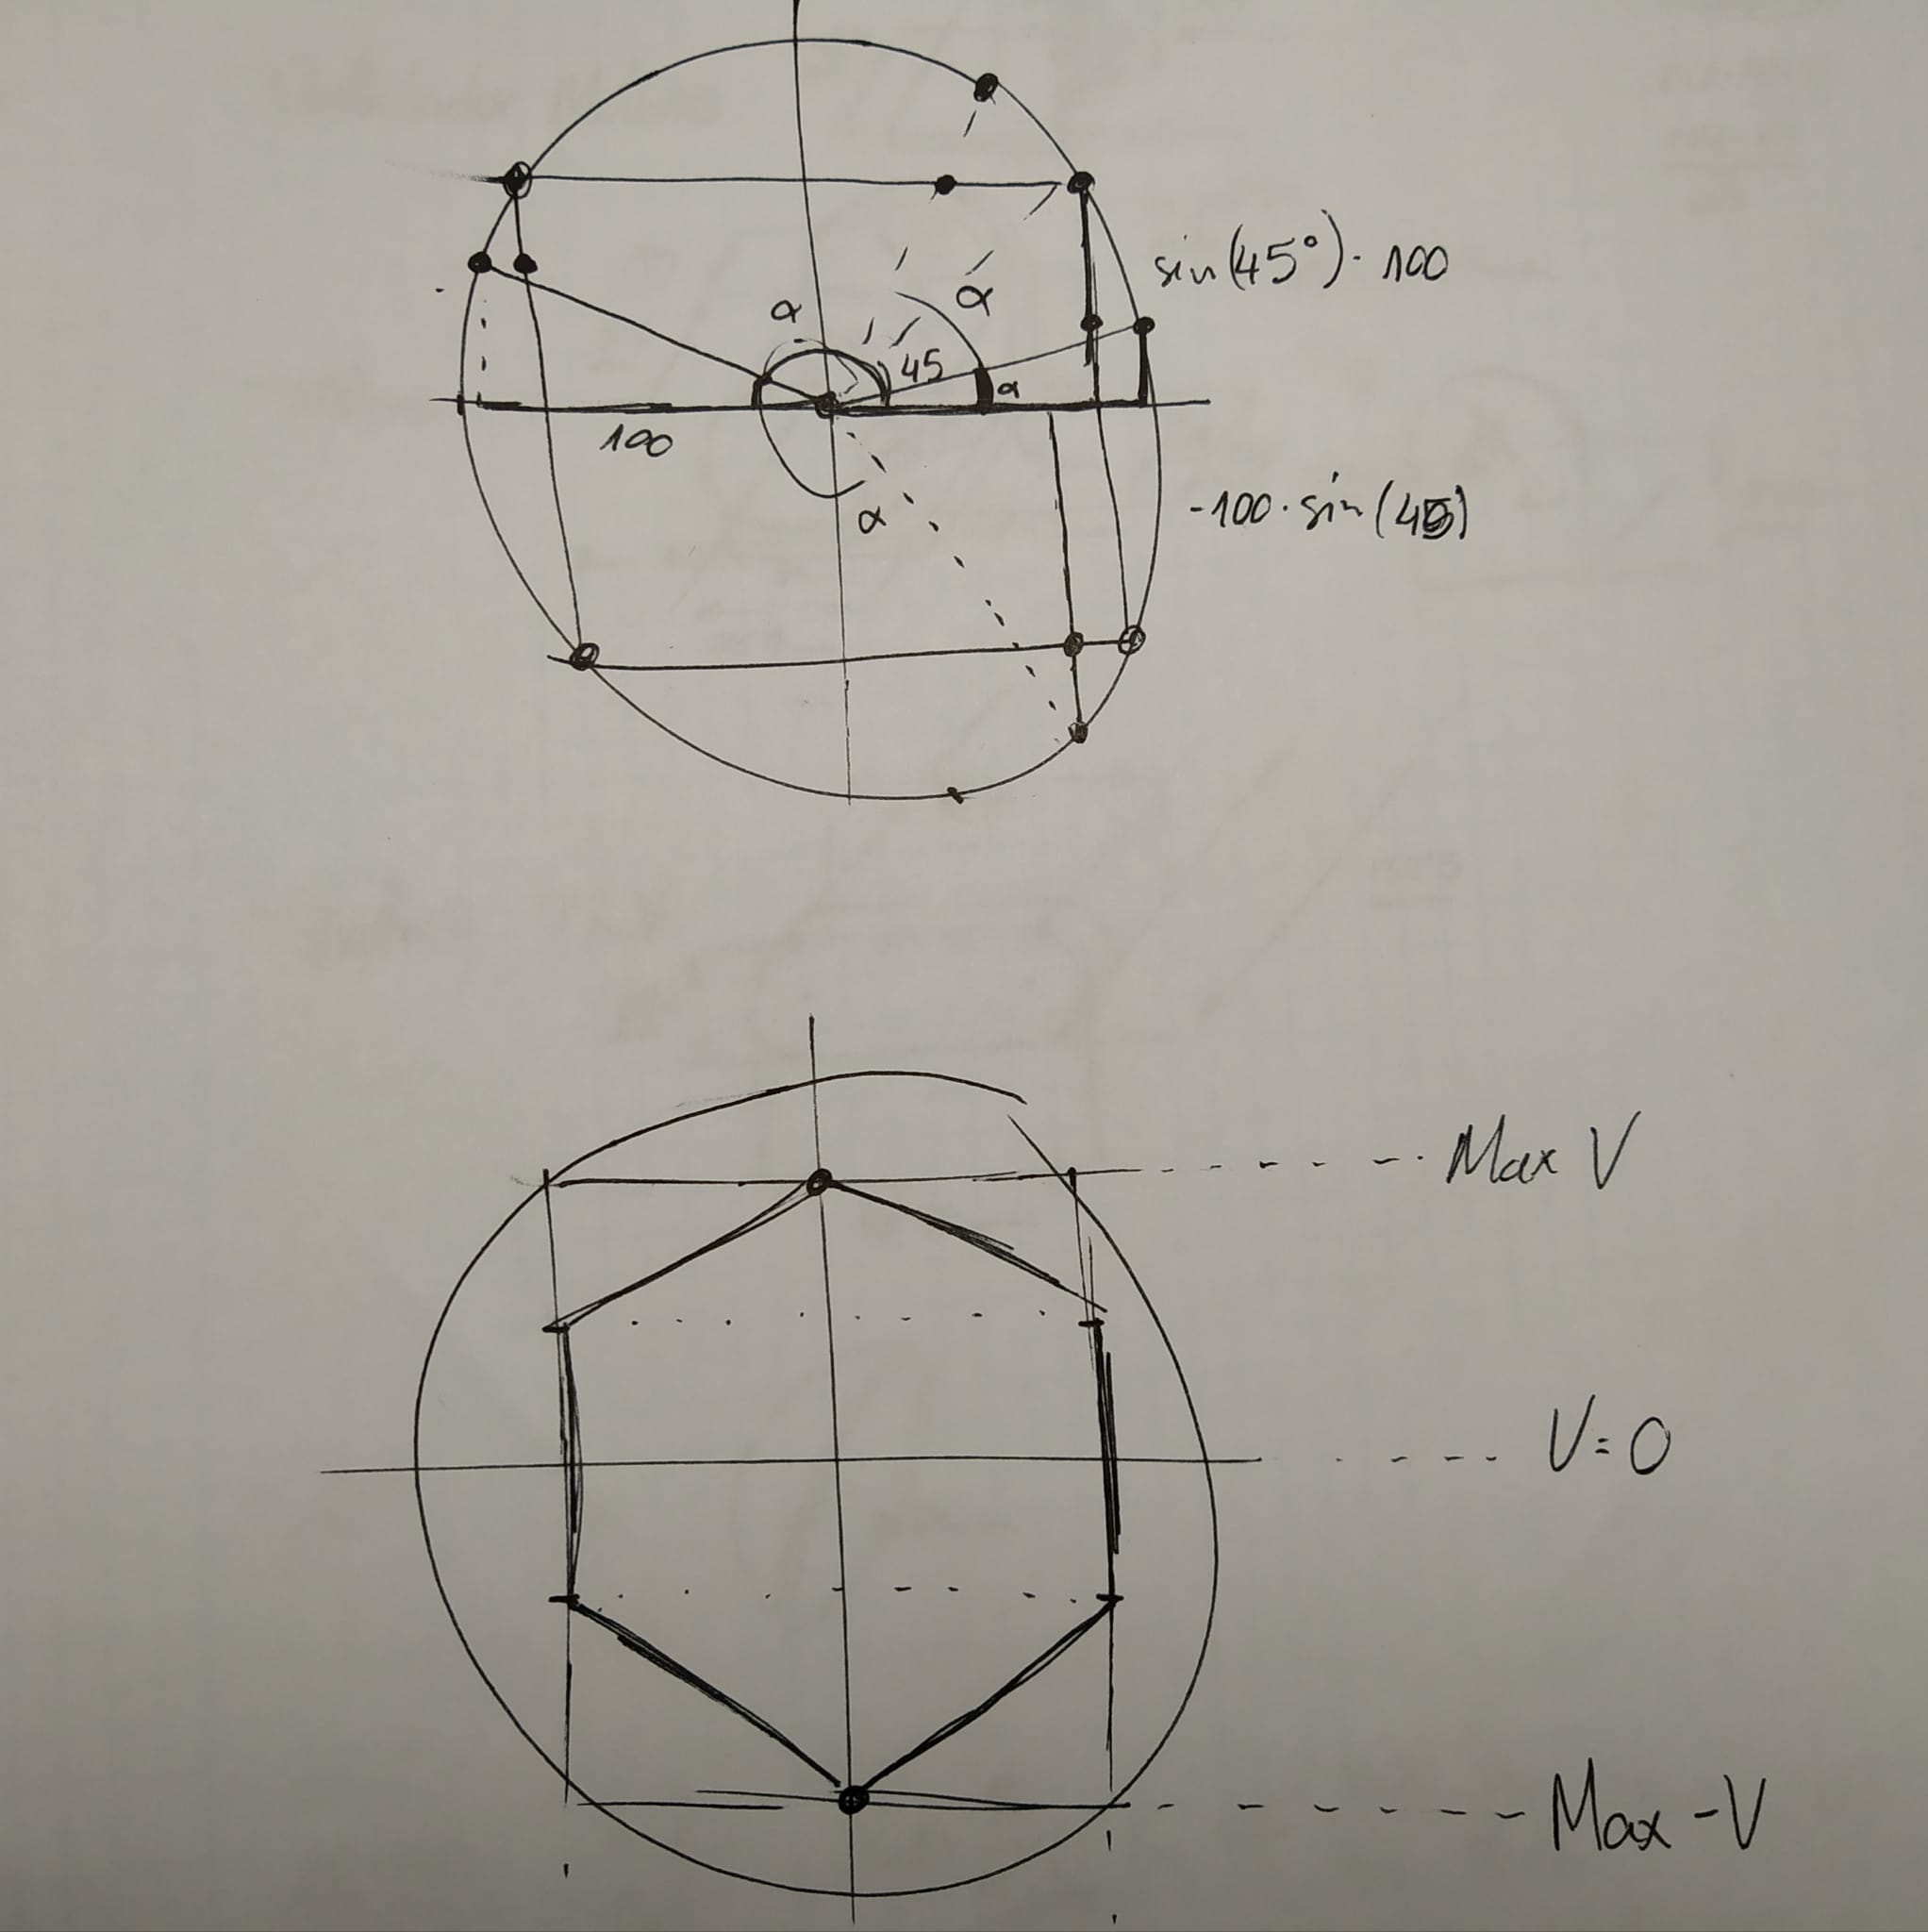 sin(45°)· 100
α
α
45
α
100
-100·sin(45)
α
Max V
V=0
Max -V